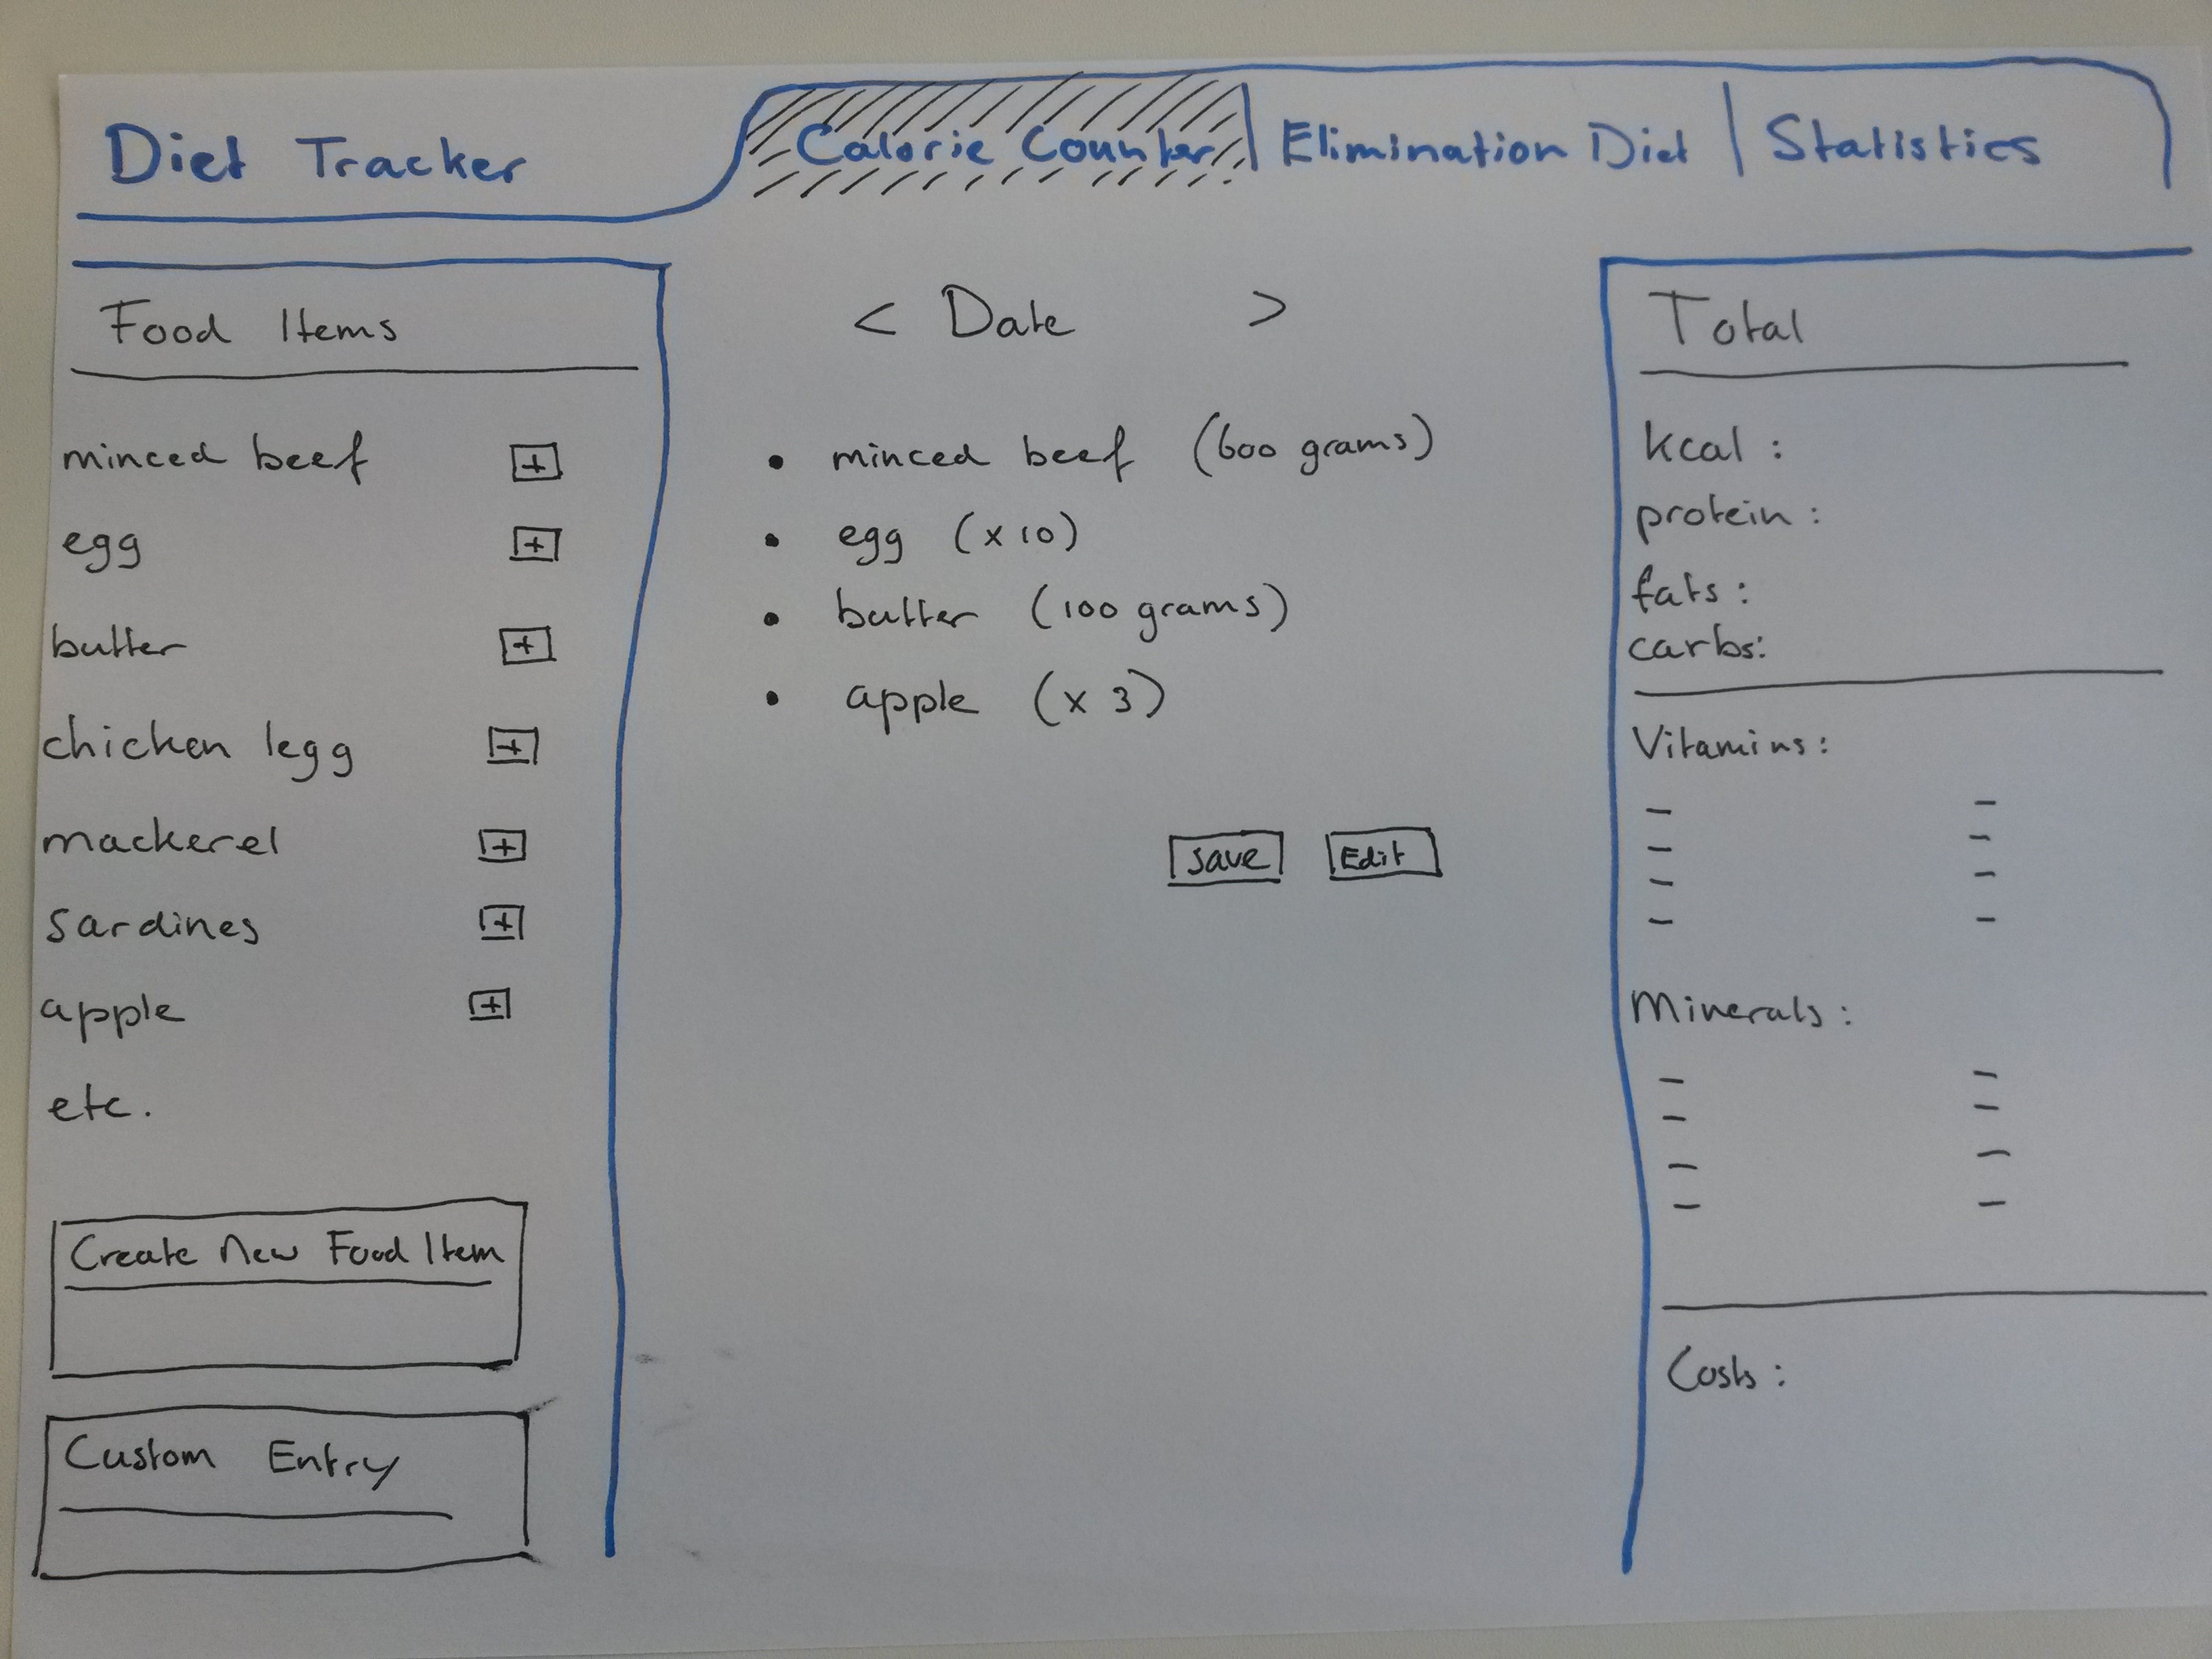 Diet Tracker
Calorie Counter | Elimination Diet | Statistics
Food Items
minced beef +
egg +
butter +
chicken legg +
mackerel +
sardines +
apple +
etc.
Create New Food Item
Custom Entry
< Date >
• minced beef (600 grams)
• egg (x 10)
• butter (100 grams)
• apple (x 3)
save Edit
Total
kcal :
protein :
fats :
carbs:
Vitamins :
– –
– –
– –
– –
Minerals :
– –
– –
– –
– –
Costs :